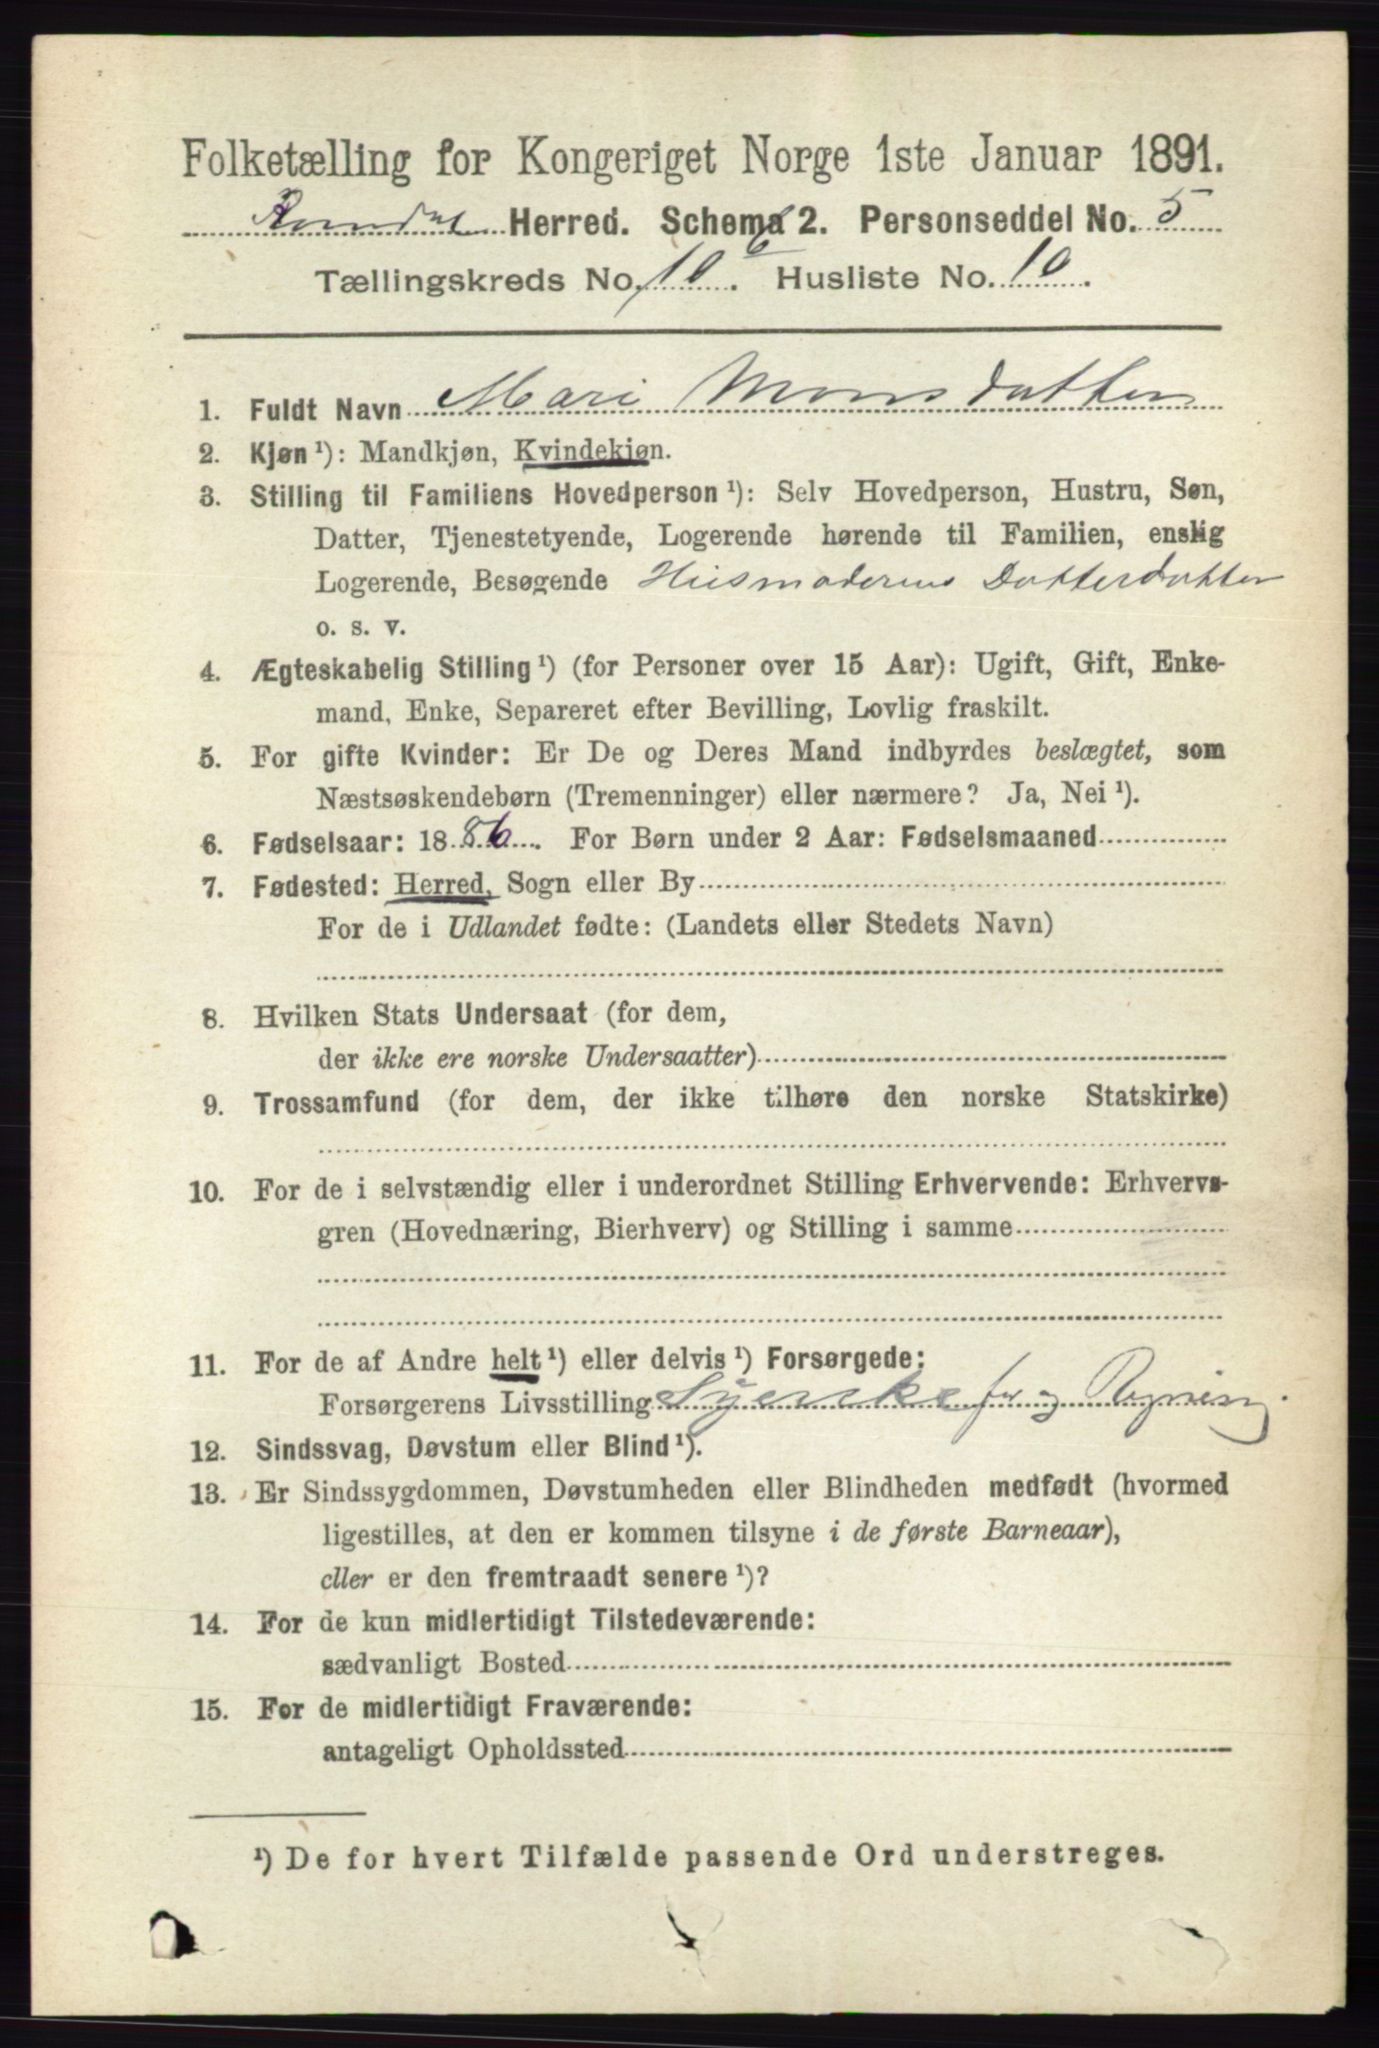 Folketælling for Kongeriget Norge 1ste Januar 1891.
Herred. Schema 2. Personseddel No. 5
6
Tællingskreds No. 10. Husliste No. 10.
1. Fuldt Navn Mari Monsdatter
2. Kjøn ¹): Mandkjøn, Kvindekjøn.
3. Stilling til Familiens Hovedperson ¹): Selv Hovedperson, Hustru, Søn,
Datter, Tjenestetyende, Logerende hørende til Familien, enslig
Logerende, Besøgende Husmoderens Datterdatter
o. s. v.
4. Ægteskabelig Stilling ¹) (for Personer over 15 Aar): Ugift, Gift, Enke-
mand, Enke, Separeret efter Bevilling, Lovlig fraskilt.
5. For gifte Kvinder: Er De og Deres Mand indbyrdes beslægtet, som
Næstsøskendebørn (Tremenninger) eller nærmere? Ja, Nei ¹).
6. Fødselsaar: 1886. For Børn under 2 Aar: Fødselsmaaned
7. Fødested: Herred, Sogn eller By
For de i Udlandet fødte: (Landets eller Stedets Navn)
8. Hvilken Stats Undersaat (for dem,
der ikke ere norske Undersaatter)
9. Trossamfund (for dem, der ikke tilhøre den norske Statskirke)
10. For de i selvstændig eller i underordnet Stilling Erhvervende: Erhvervs-
gren (Hovednæring, Bierhverv) og Stilling i samme
11. For de af Andre helt ¹) eller delvis ¹) Forsørgede:
Forsørgerens Livsstilling Syerske for eg Regning.
12. Sindssvag, Døvstum eller Blind ¹).
13. Er Sindssygdommen, Døvstumheden eller Blindheden medfødt (hvormed
ligestilles, at den er kommen tilsyne i de første Barneaar),
eller er den fremtraadt senere ¹)?
14. For de kun midlertidigt Tilstedeværende:
sædvanligt Bosted
15. For de midlertidigt Fraværende:
antageligt Opholdssted
¹) De for hvert Tilfælde passende Ord understreges.